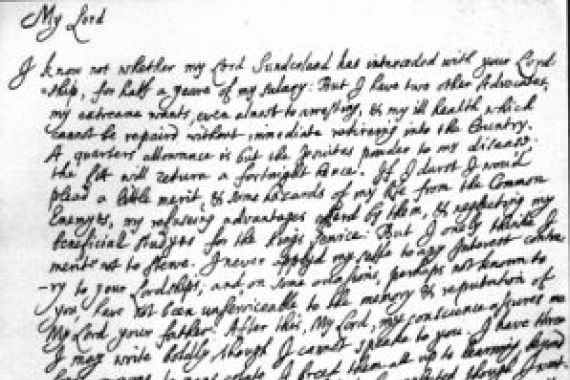 My Lord
I know not whether my Lord Sunderland has interceded with your Lord
-ship, for half a yeare of my salary: But I have two other Advocates,
my extreame wants, even almost to arresting, & my ill health which
cannot be repaird without immediate retireing into the Country.
A quarters allowance is but the Jesuites powder to my disease;
the fit will return a fortnight hence. If I durst I would
plead a little merit, & some hazards of my life from the Common
Enemyes, my refuseing advantages offerd by them, & neglecting my
beneficial studyes for the Kings service: But I onely thinke I
merit not to sterve. I never applyd my selfe to any Interest contra-
-ry to your Lordships; and on some occasions, perhaps not known to
you, have not been unserviceable to the memory & reputation of
My Lord your father. After this, My Lord, my conscience assures me
I may write boldly, though I cannot speake to you. I have three
Sons I breed them all up to learning, beyond